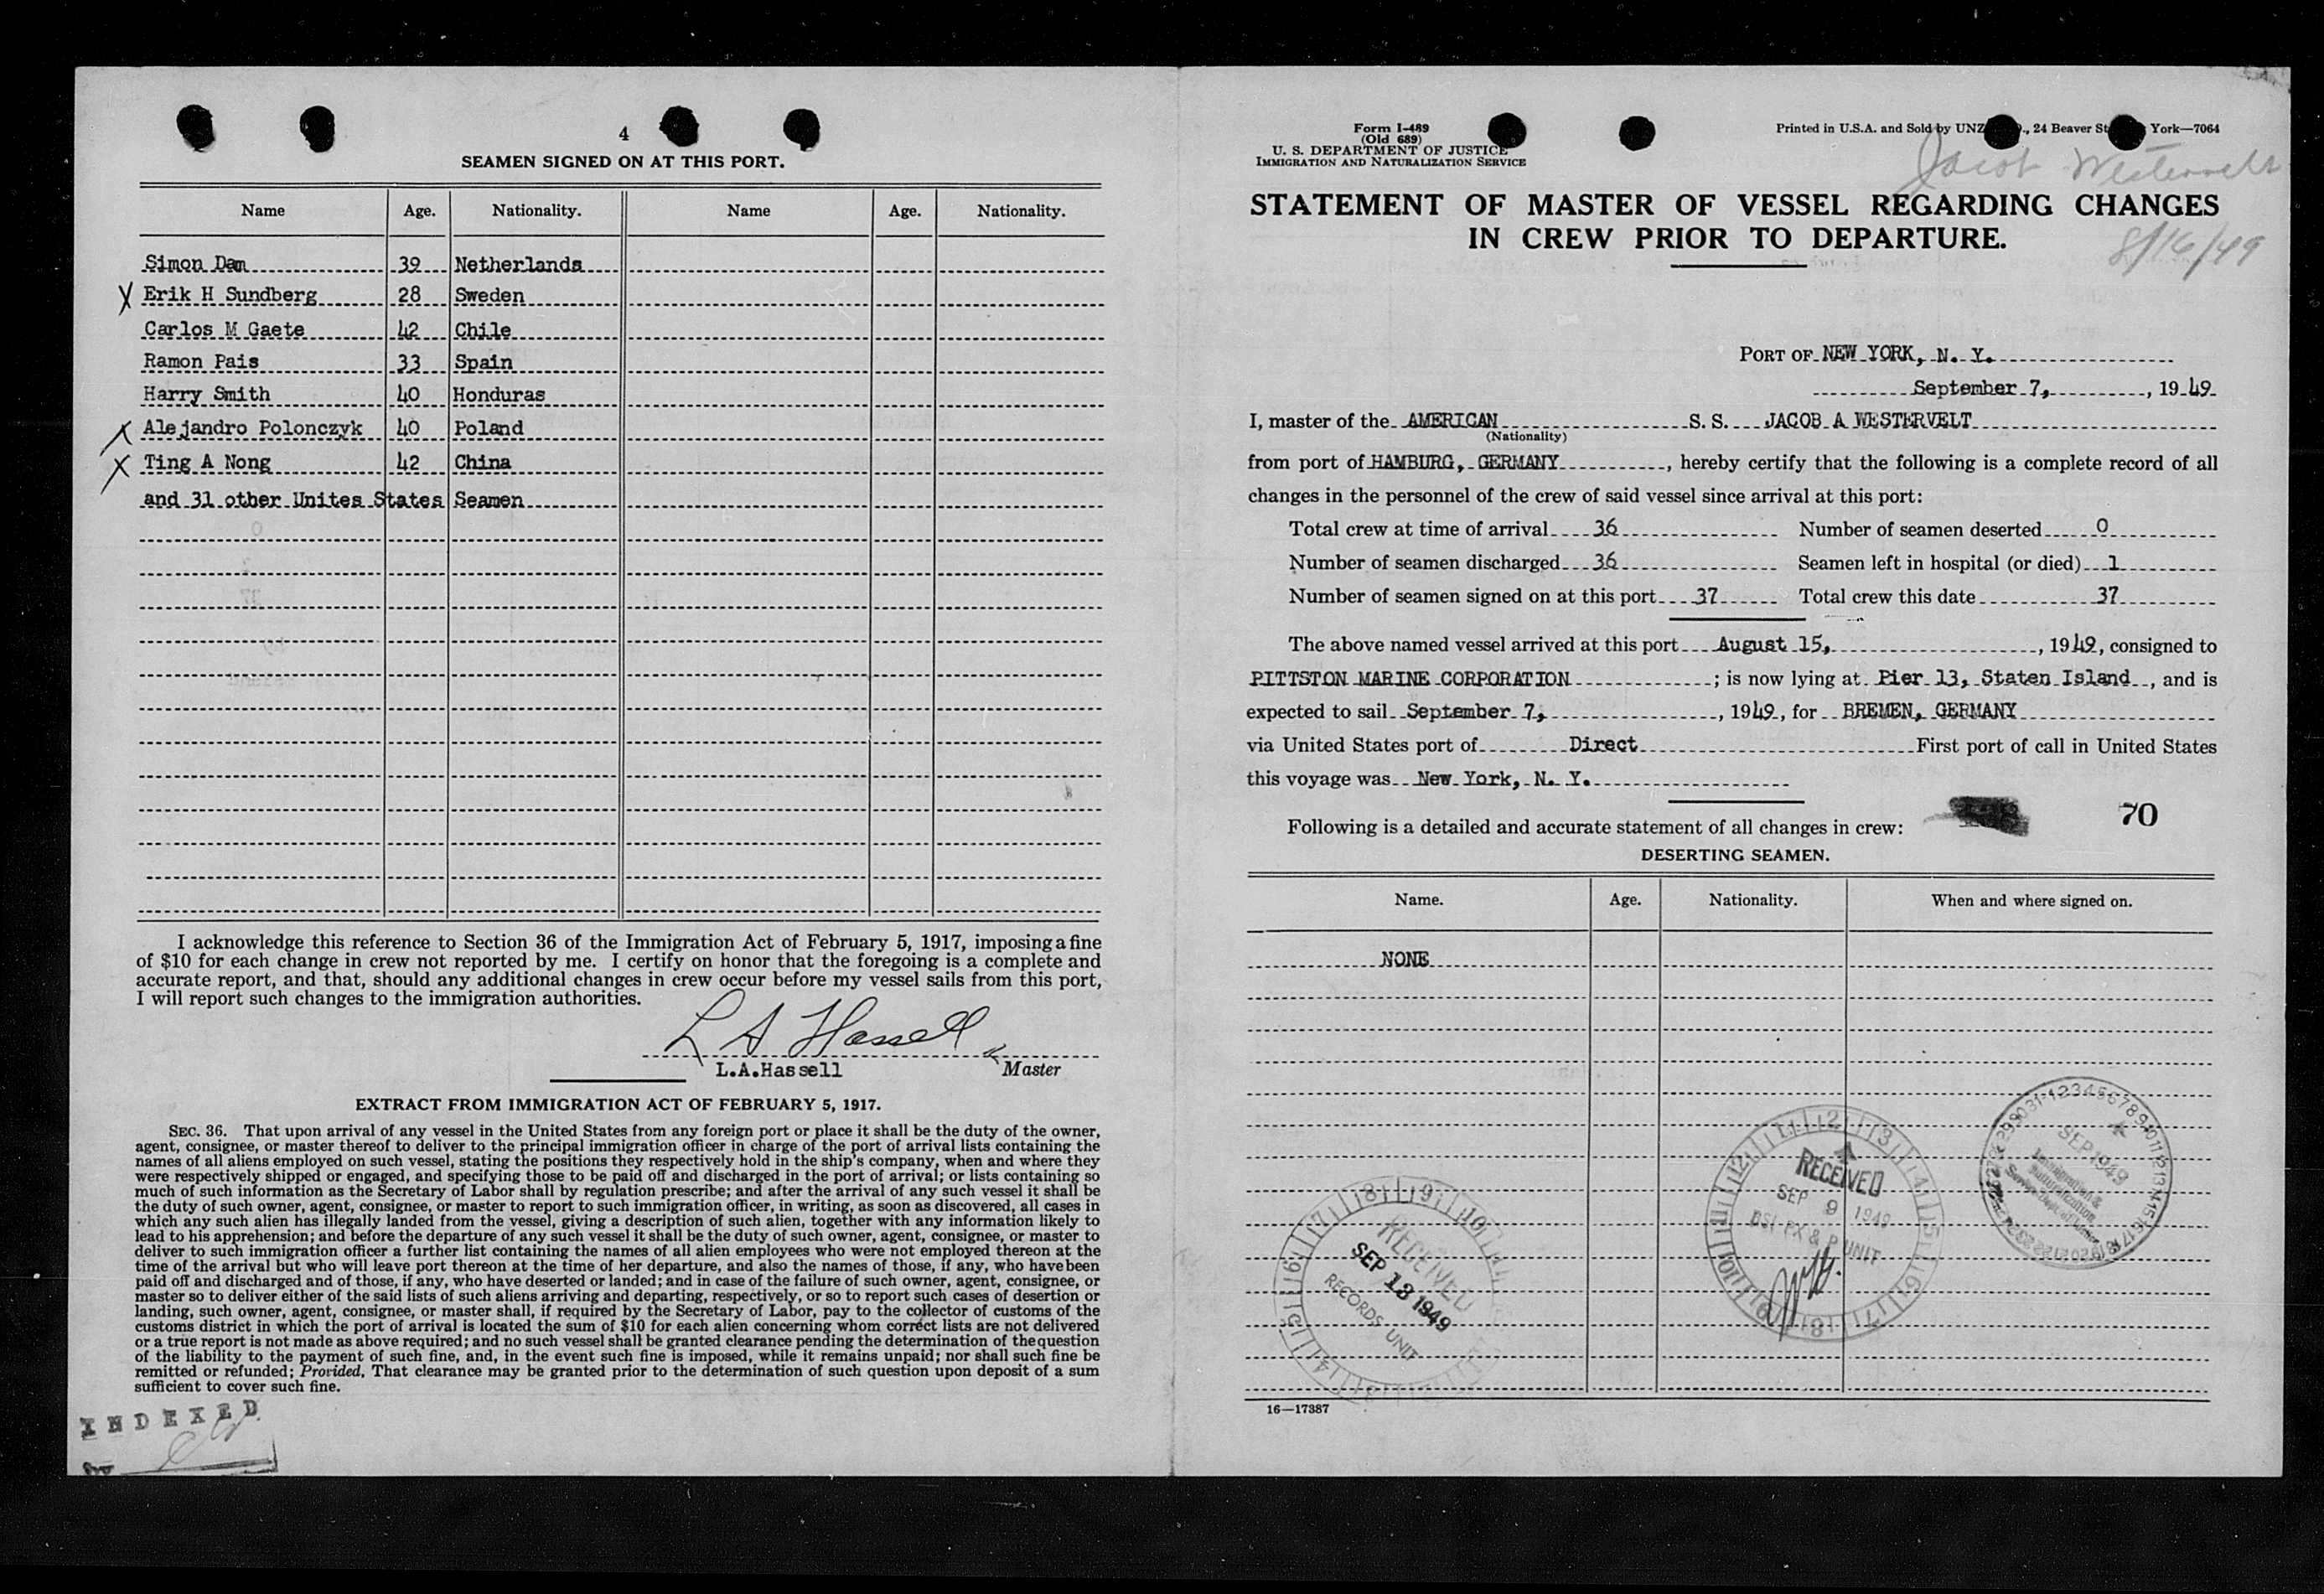 4
SEAMEN SIGNED ON AT THIS PORT.
Name Age. Nationality. Name Age. Nationality.
Simon Dam 39 Netherlands
X Erik H Sundberg 28 Sweden
Carlos M Gaete 42 Chile
Ramon Pais 33 Spain
Harry Smith 40 Honduras
X Alejandro Polonczyk 40 Poland
X Ting A Nong 42 China
and 31 other Unites States Seamen
I acknowledge this reference to Section 36 of the Immigration Act of February 5, 1917, imposing a fine
of $10 for each change in crew not reported by me. I certify on honor that the foregoing is a complete and
accurate report, and that, should any additional changes in crew occur before my vessel sails from this port,
I will report such changes to the immigration authorities.
L A Hassell
L.A.Hassell Master
EXTRACT FROM IMMIGRATION ACT OF FEBRUARY 5, 1917.
SEC. 36. That upon arrival of any vessel in the United States from any foreign port or place it shall be the duty of the owner,
agent, consignee, or master thereof to deliver to the principal immigration officer in charge of the port of arrival lists containing the
names of all aliens employed on such vessel, stating the positions they respectively hold in the ship's company, when and where they
were respectively shipped or engaged, and specifying those to be paid off and discharged in the port of arrival; or lists containing so
much of such information as the Secretary of Labor shall by regulation prescribe; and after the arrival of any such vessel it shall be
the duty of such owner, agent, consignee, or master to report to such immigration officer, in writing, as soon as discovered, all cases in
which any such alien has illegally landed from the vessel, giving a description of such alien, together with any information likely to
lead to his apprehension; and before the departure of any such vessel it shall be the duty of such owner, agent, consignee, or master to
deliver to such immigration officer a further list containing the names of all alien employees who were not employed thereon at the
time of the arrival but who will leave port thereon at the time of her departure, and also the names of those, if any, who have been
paid off and discharged and of those, if any, who have deserted or landed; and in case of the failure of such owner, agent, consignee, or
master so to deliver either of the said lists of such aliens arriving and departing, respectively, or so to report such cases of desertion or
landing, such owner, agent, consignee, or master shall, if required by the Secretary of Labor, pay to the collector of customs of the
customs district in which the port of arrival is located the sum of $10 for each alien concerning whom correct lists are not delivered
or a true report is not made as above required; and no such vessel shall be granted clearance pending the determination of the question
of the liability to the payment of such fine, and, in the event such fine is imposed, while it remains unpaid; nor shall such fine be
remitted or refunded; Provided, That clearance may be granted prior to the determination of such question upon deposit of a sum
sufficient to cover such fine.
INDEXED
Form I-489
(Old 689)
U. S. DEPARTMENT OF JUSTICE
IMMIGRATION AND NATURALIZATION SERVICE
Printed in U.S.A. and Sold by UNZ ., 24 Beaver St York—7064
Jacob Westervelt
STATEMENT OF MASTER OF VESSEL REGARDING CHANGES
IN CREW PRIOR TO DEPARTURE.
8/16/49
PORT OF NEW YORK, N. Y.
September 7, , 1949
I, master of the AMERICAN S. S. JACOB A WESTERVELT
(Nationality)
from port of HAMBURG, GERMANY , hereby certify that the following is a complete record of all
changes in the personnel of the crew of said vessel since arrival at this port:
Total crew at time of arrival 36 Number of seamen deserted 0
Number of seamen discharged 36 Seamen left in hospital (or died) 1
Number of seamen signed on at this port 37 Total crew this date 37
The above named vessel arrived at this port August 15, , 1949, consigned to
PITTSTON MARINE CORPORATION ; is now lying at Pier 13, Staten Island , and is
expected to sail September 7, , 1949, for BREMEN, GERMANY
via United States port of Direct First port of call in United States
this voyage was New York, N. Y.
70
Following is a detailed and accurate statement of all changes in crew:
DESERTING SEAMEN.
Name. Age. Nationality. When and where signed on.
NONE
RECEIVED
SEP 13 1949
RECORDS UNIT
RECEIVED
SEP 9 1949
BSI PX & P UNIT
SEP 1949
Immigration &
Naturalization
16—17387